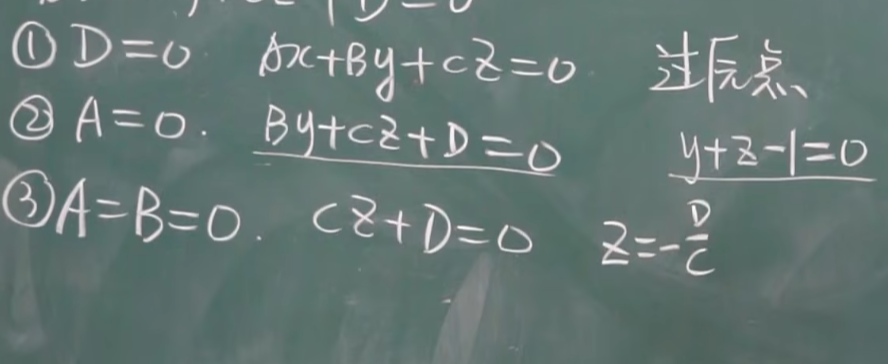 +D=0
① D=0 Ax+By+CZ=0 过原点、
② A=0. By+CZ+D=0 y+z-1=0
③ A=B=0. CZ+D=0 Z=-D/C